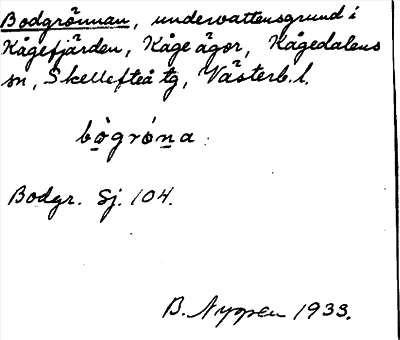 Bodgrönnan, undervattensgrund i
Kågefjärden, Kåge ägor, Kågedalens
sn, Skellefteå tg, Västerb. l.
bògróna
Bodgr. Sj. 104.
B. Nygren 1933.